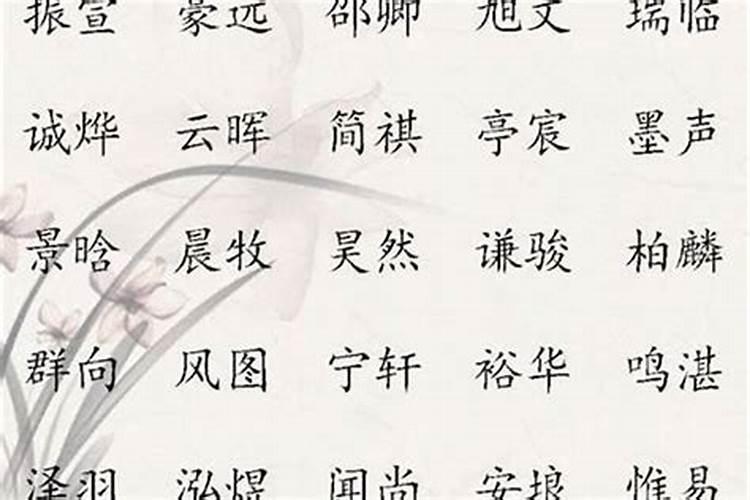 振宣 豪远 邵卿 旭文 瑞临
诚烨 云晖 简祺 亭宸 墨声
景晗 晨牧 昊然 谦骏 柏麟
群向 风图 宁轩 裕华 鸣湛
泽羽 泓煜 闻尚 安埌 惟易